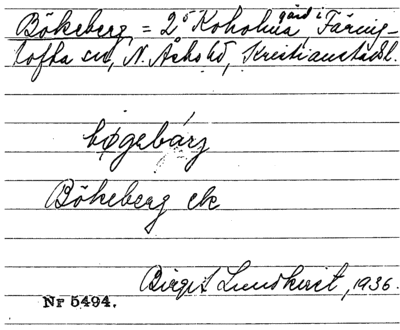 Bökeberg = 2⁵ Koholma gård i Färing-
tofta sn, N. Åsbo hd, Kristianstads l.
bøgebárj
Bökeberg ek
Birgit Lundkvist, 1936.
Nr 5494.